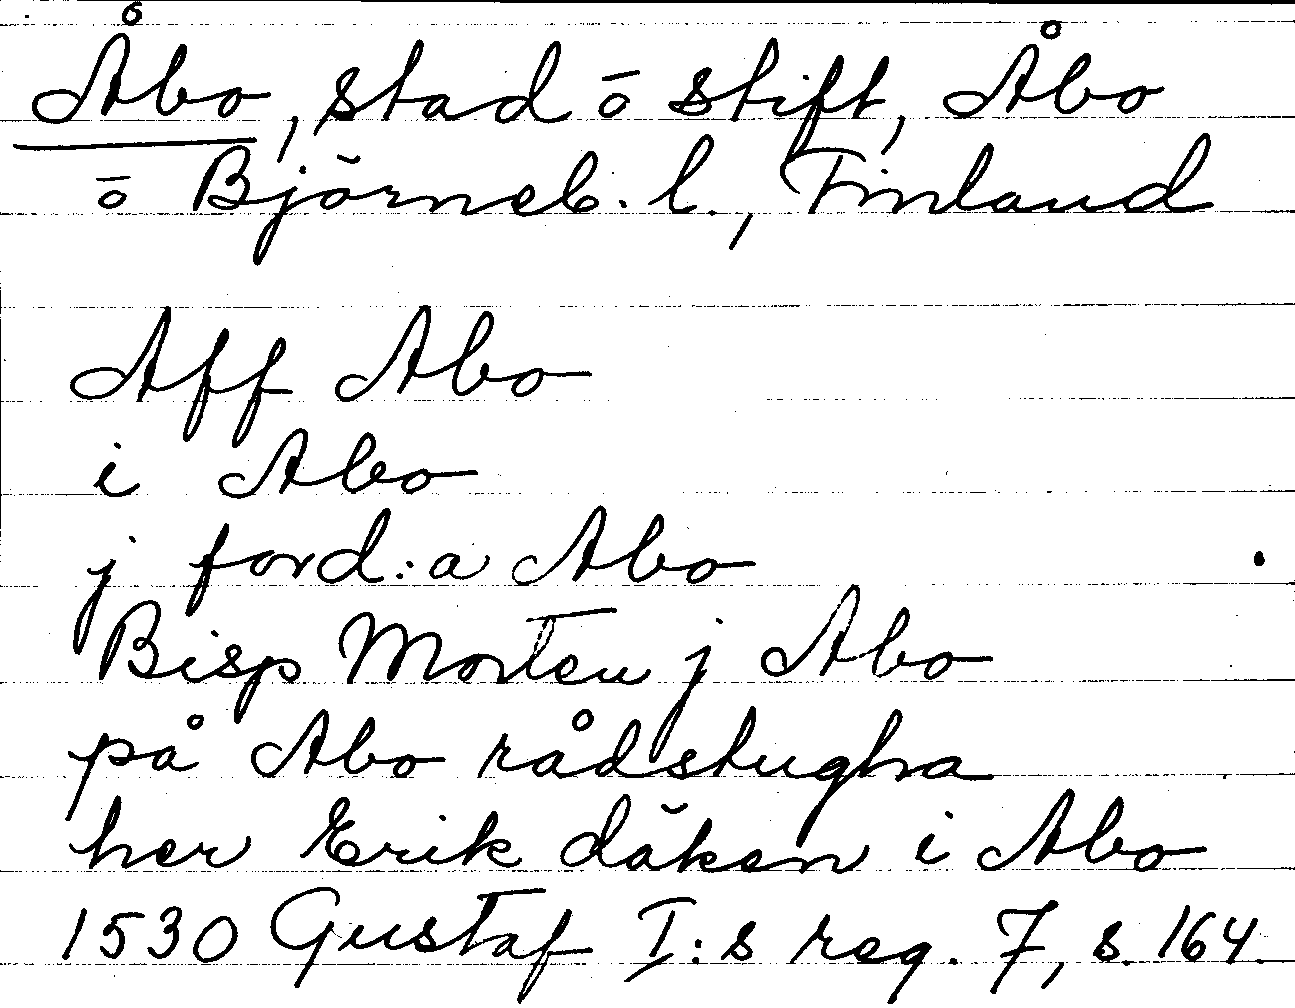 Åbo, stad ō stift, Åbo
ō Björneb. l., Finland
Aff Abo
i Abo
j ford:a Abo
Bisp Morten j Abo
på Abo rådstugha
her Erik däken i Abo
1530 Gustaf I:s reg. 7, s. 164.